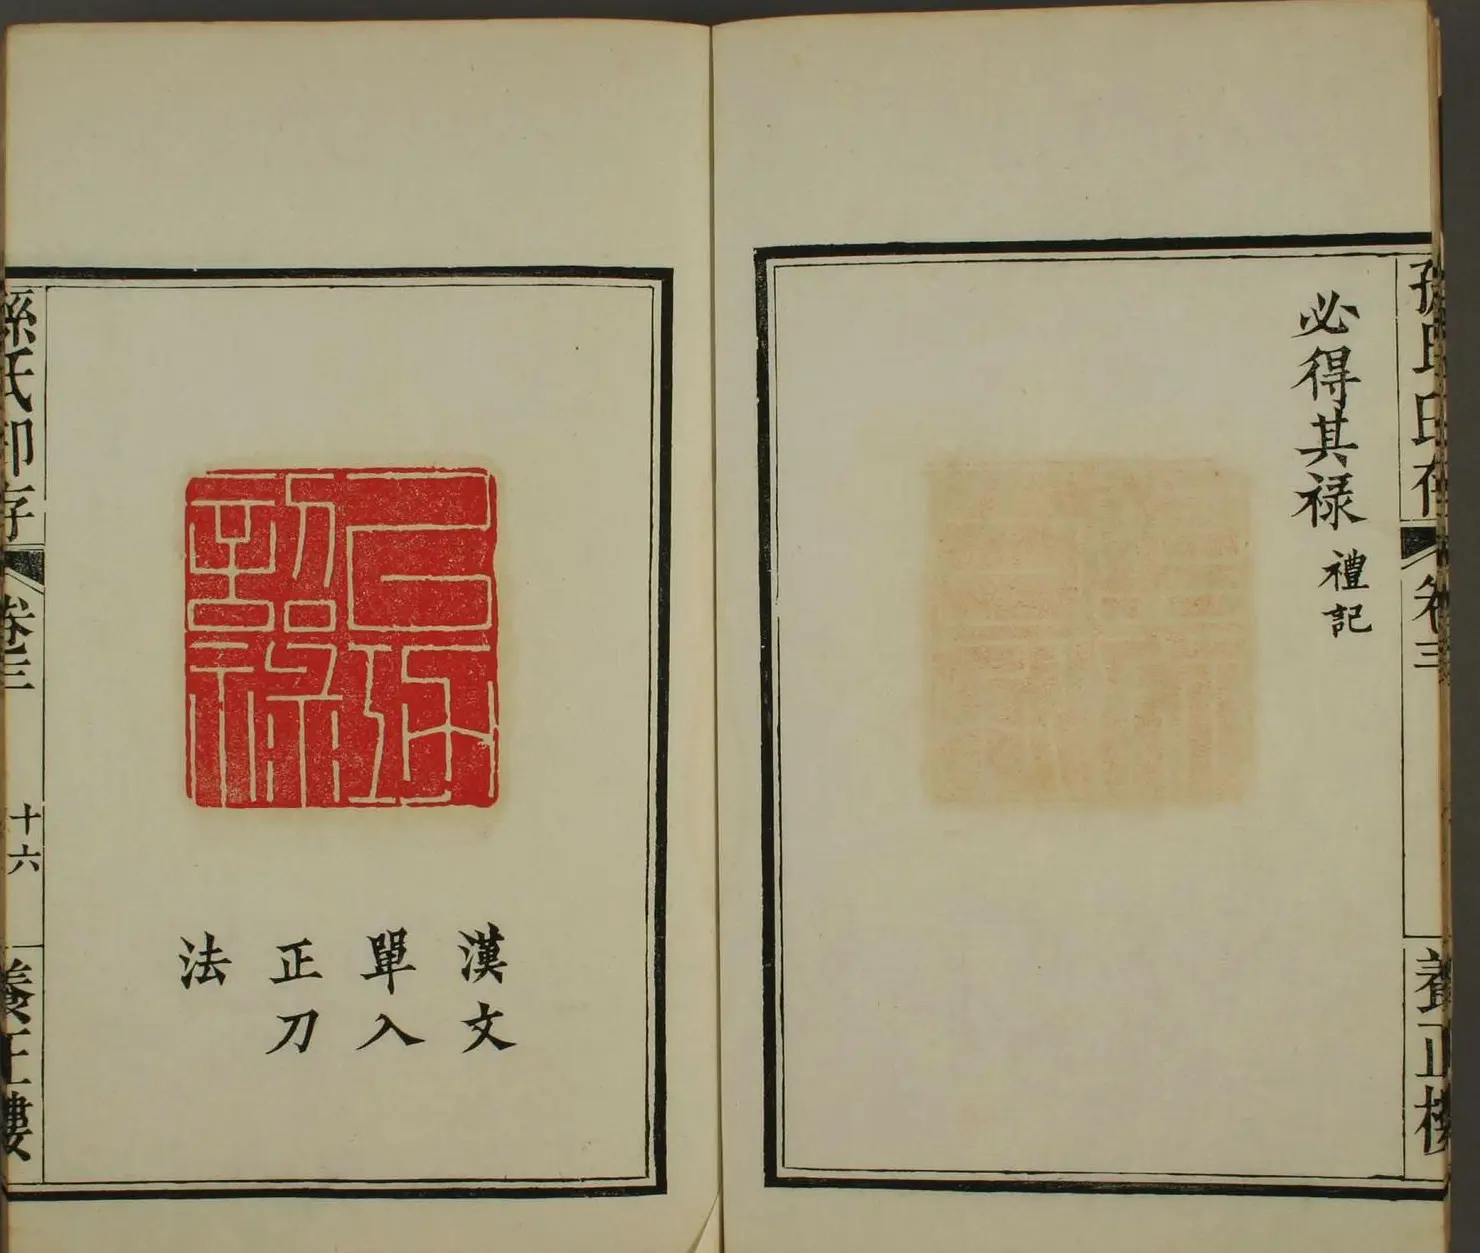 孫氏印存
卷三
養正樓
必得其禄 禮記
漢文
單入
正刀
法
孫氏印存
卷三
十六
養正樓